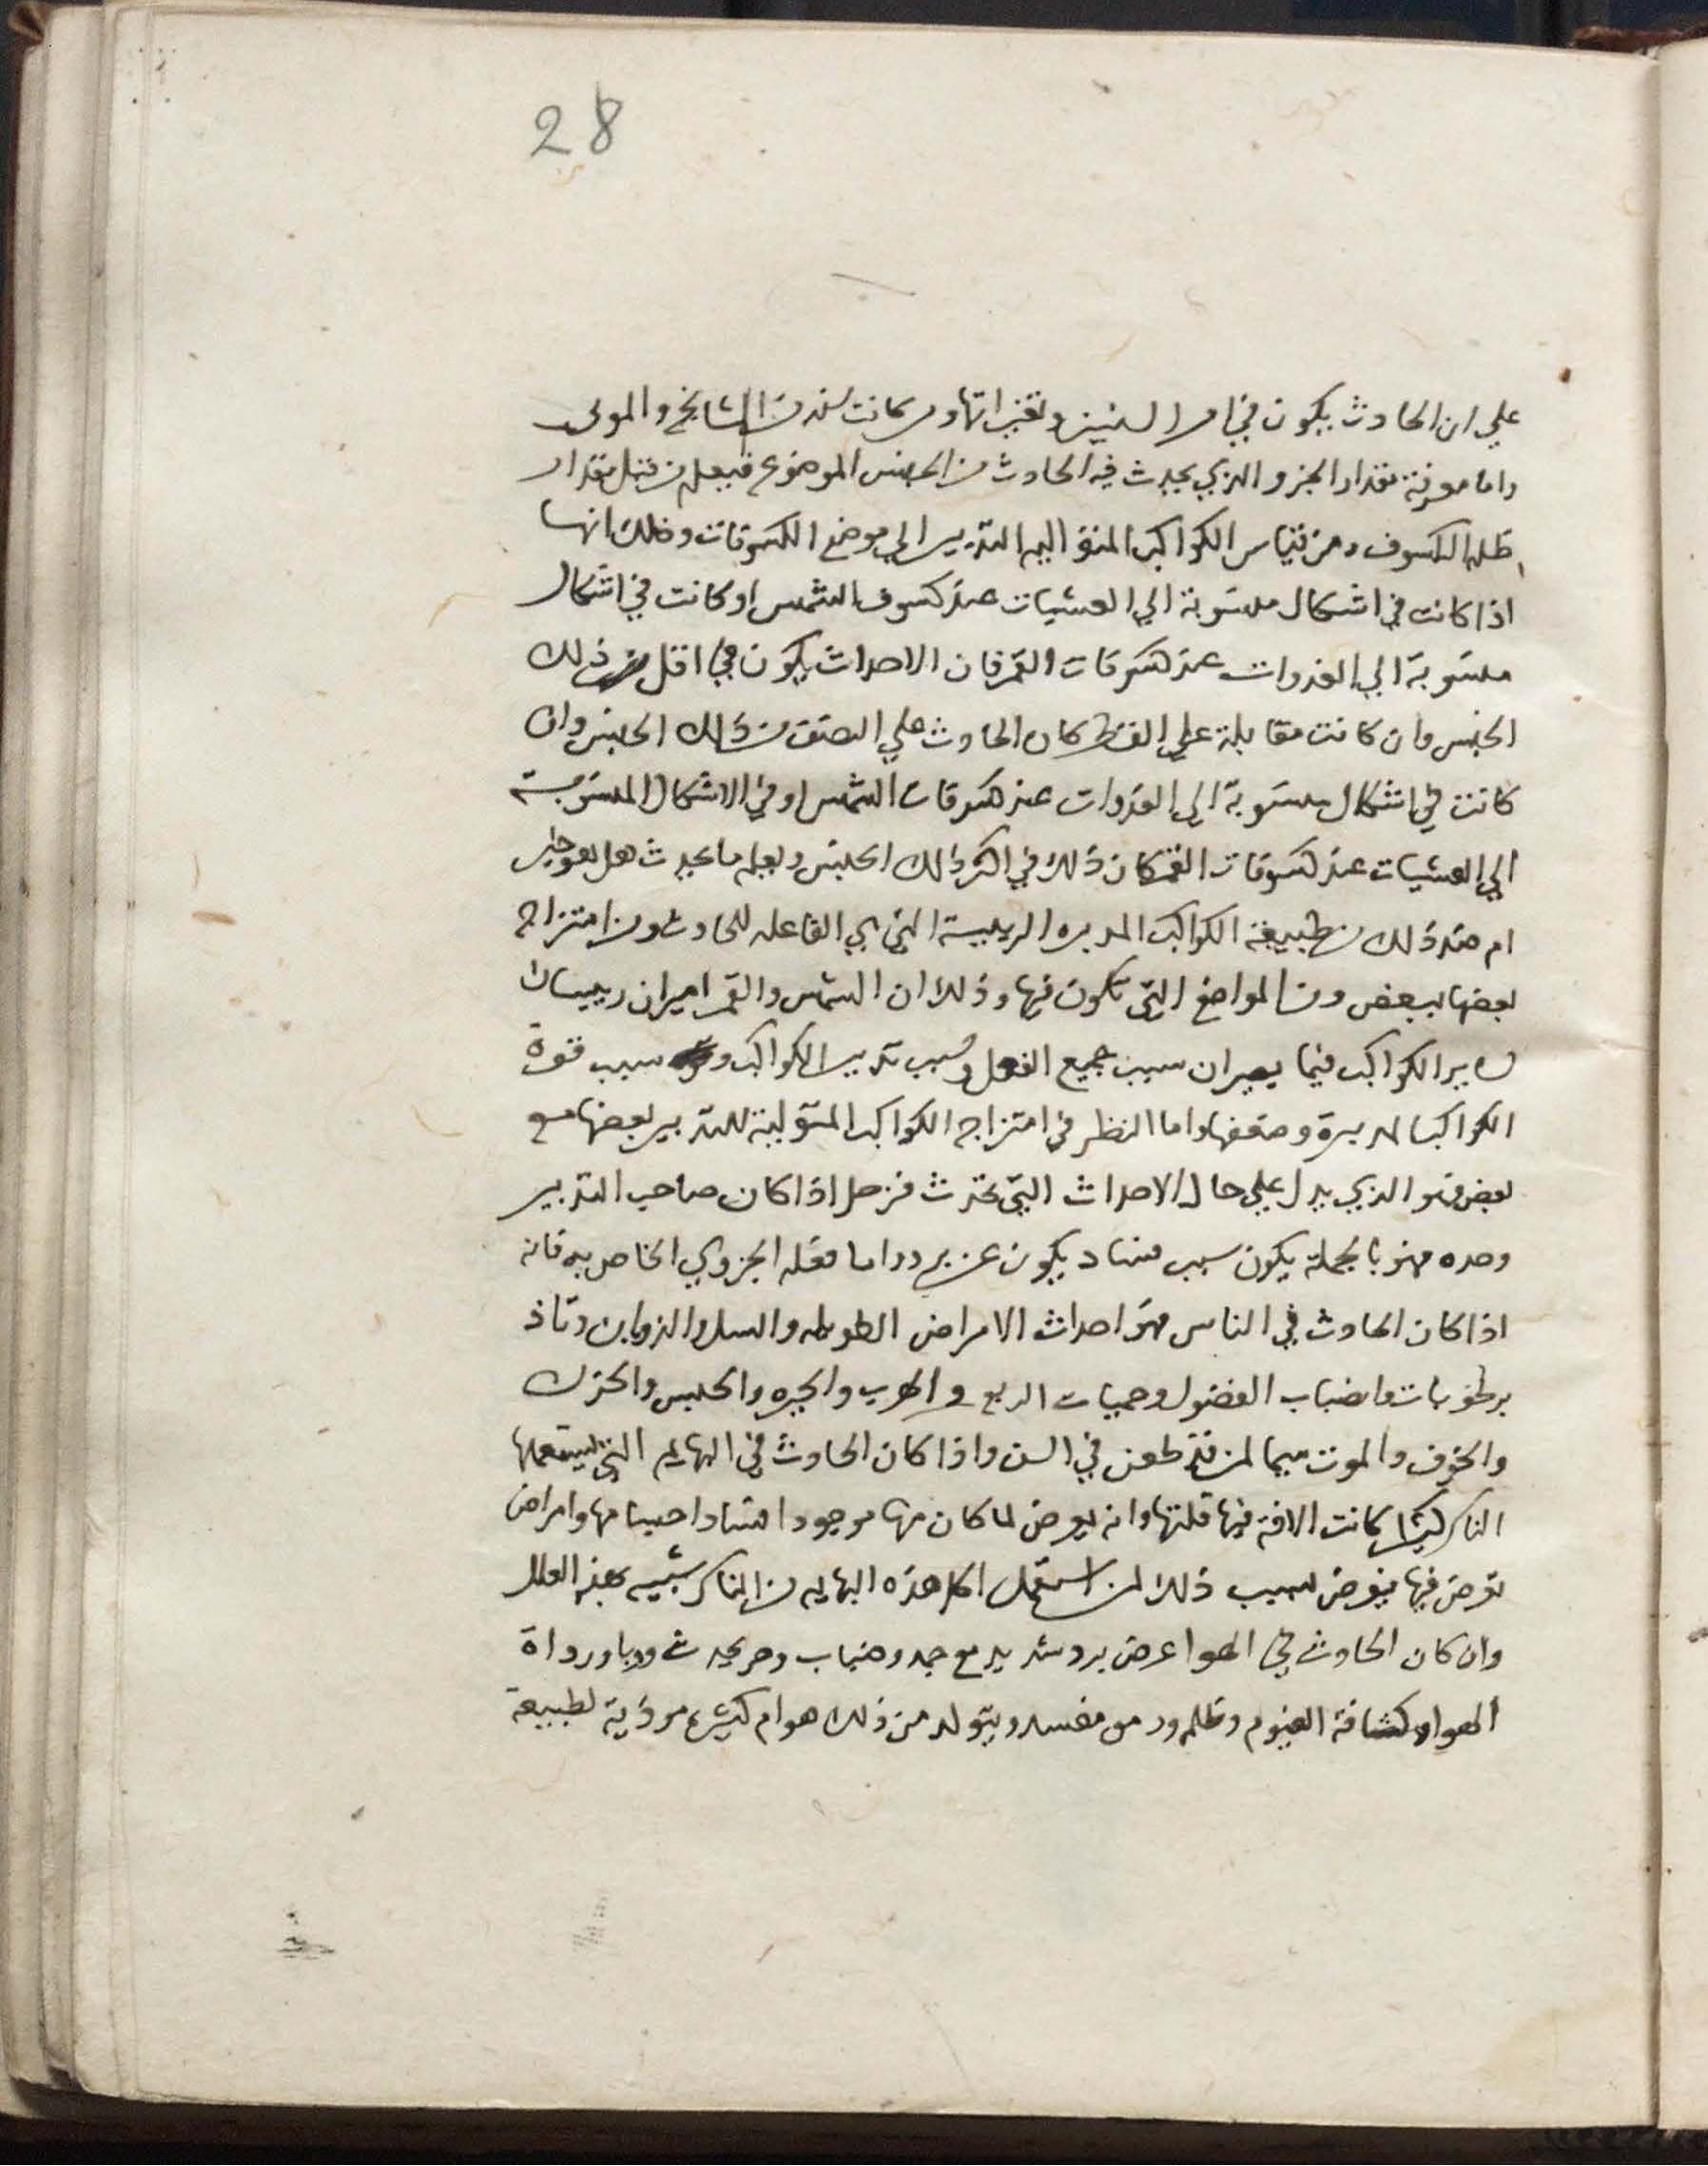 28
علي ان الحادث يكون في امر السنين وتغيراتها ومكانت من المشايخ والموتى
واما معرفة مقدار الجزو الذي يحدث فيه الحادث من الجنس الموضوع فيعلم من قبل مقدار
ظلمه الكسوف ومن قياس الكواكب المتواليه التدبير الي موضع الكسوفات وذلك انها
اذا كانت في اشكال منسوبة الي العشيات عند كسوف الشمس او كانت في اشكال
منسوبة الي الغدوات عند كسوفات القمر فان الاحداث يكون في اقل من ذلك
الجنس وان كانت مقابلة علي القطر كان الحادث علي النصف من ذلك الجنس وان
كانت في اشكال منسوبة الي الغدوات عند كسوفات الشمس او في الاشكال المنسوبة
الي العشيات عند كسوفات القمر كان ذلك في اكثر ذلك الجنس ويعلم ما يحدث هل هو خير
ام ضد ذلك من طبيعة الكواكب المدبره الرييسة التي هي الفاعله للحادث ومن امتزاج
بعضها ببعض ومن المواضع التي تكون فيها وذلك ان الشمس والقمر اميران رييسان
لساير الكواكب فيما يصيران سبب جميع الفعل وسبب تدبير الكواكب وسبب قوة
الكواكب المدبرة وضعفها واما النظر في امتزاج الكواكب المتولية للتدبير بعضها مع
بعض فهو الذي يدل علي حال الاحداث التي تحدث فزحل اذا كان صاحب التدبير
وحده فهو بالجملة يكون سبب فساد يكون عن برد واما فعله الجزوي الخاص به فانه
اذا كان الحادث في الناس فهو احداث الامراض الطويله والسل والذوبان وتاذ
برطوبات وانصباب الفضول وحميات الربع والهرب والحيره والحبس والحزن
والخوف والموت سيما لمن قد طعن في السن واذا كان الحادث في البهايم التي يستعملها
الناس كثيرا كانت الافة فيها قلتها وانه يعرض لما كان منها موجودا فساد اجسامها وامراض
تعرض فيها فيعرض بسبب ذلك لمن استعمل اكل هذه البهايم من الناس شبيه بهذه العلل
وان كان الحادث في الهوا عرض برد شديد مع جمد وضباب وحر يحدث ووبا ورداة
الهوا وكثافة الغيوم وظلمه مفسد ويتولد من ذلك هوام كثيره موذية لطبيعة